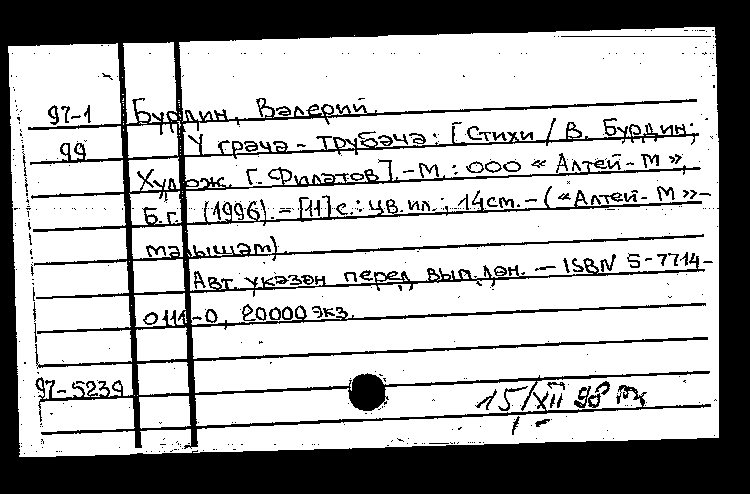 97-1 Бурдин, Валерий.
99 У грача - трубача: [Стихи / В. Бурдин;
Худож. Г. Филатов]. - М.: ООО «Алтей-М»,
Б.г. (1996). - [11] с.: цв. ил.; 14 см. - («Алтей-М» -
малышам).
Авт. указан перед вып. дан. - ISBN 5-7714-
0111-0, 20000 экз.
97-5239
15/XII 98